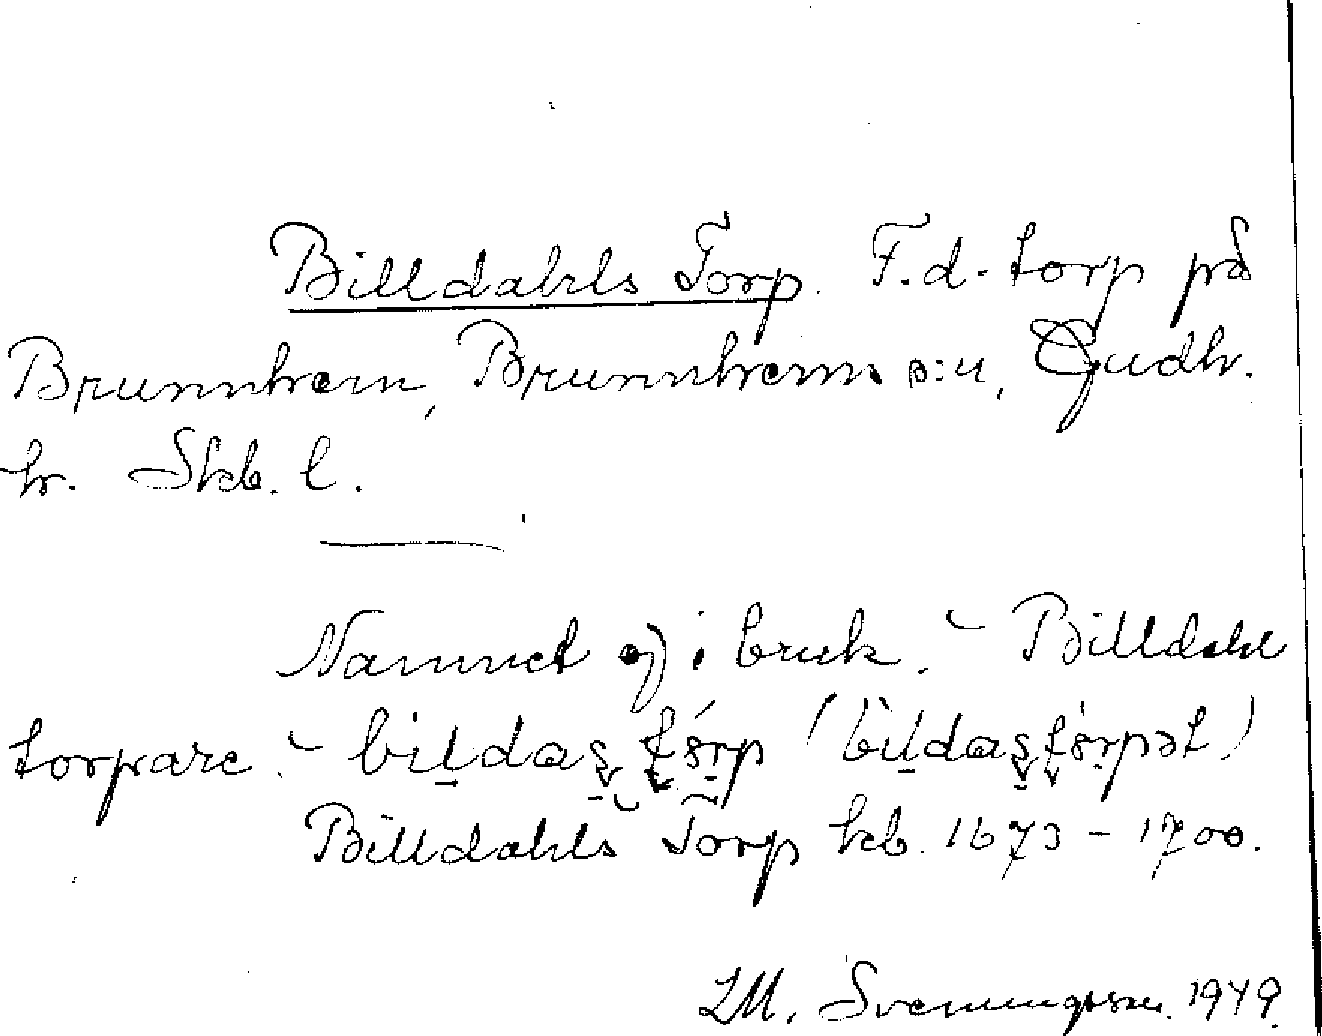 Billdahls Torp. F.d. torp på
Brunnhem, Brunnhems s:n, Gudh.
hr. Skb. l.
Namnet ej i bruk. – Billdahl
torpare. –
Billdahls Torp kb. 1673 – 1700.
LM. Svenungsson. 1949.